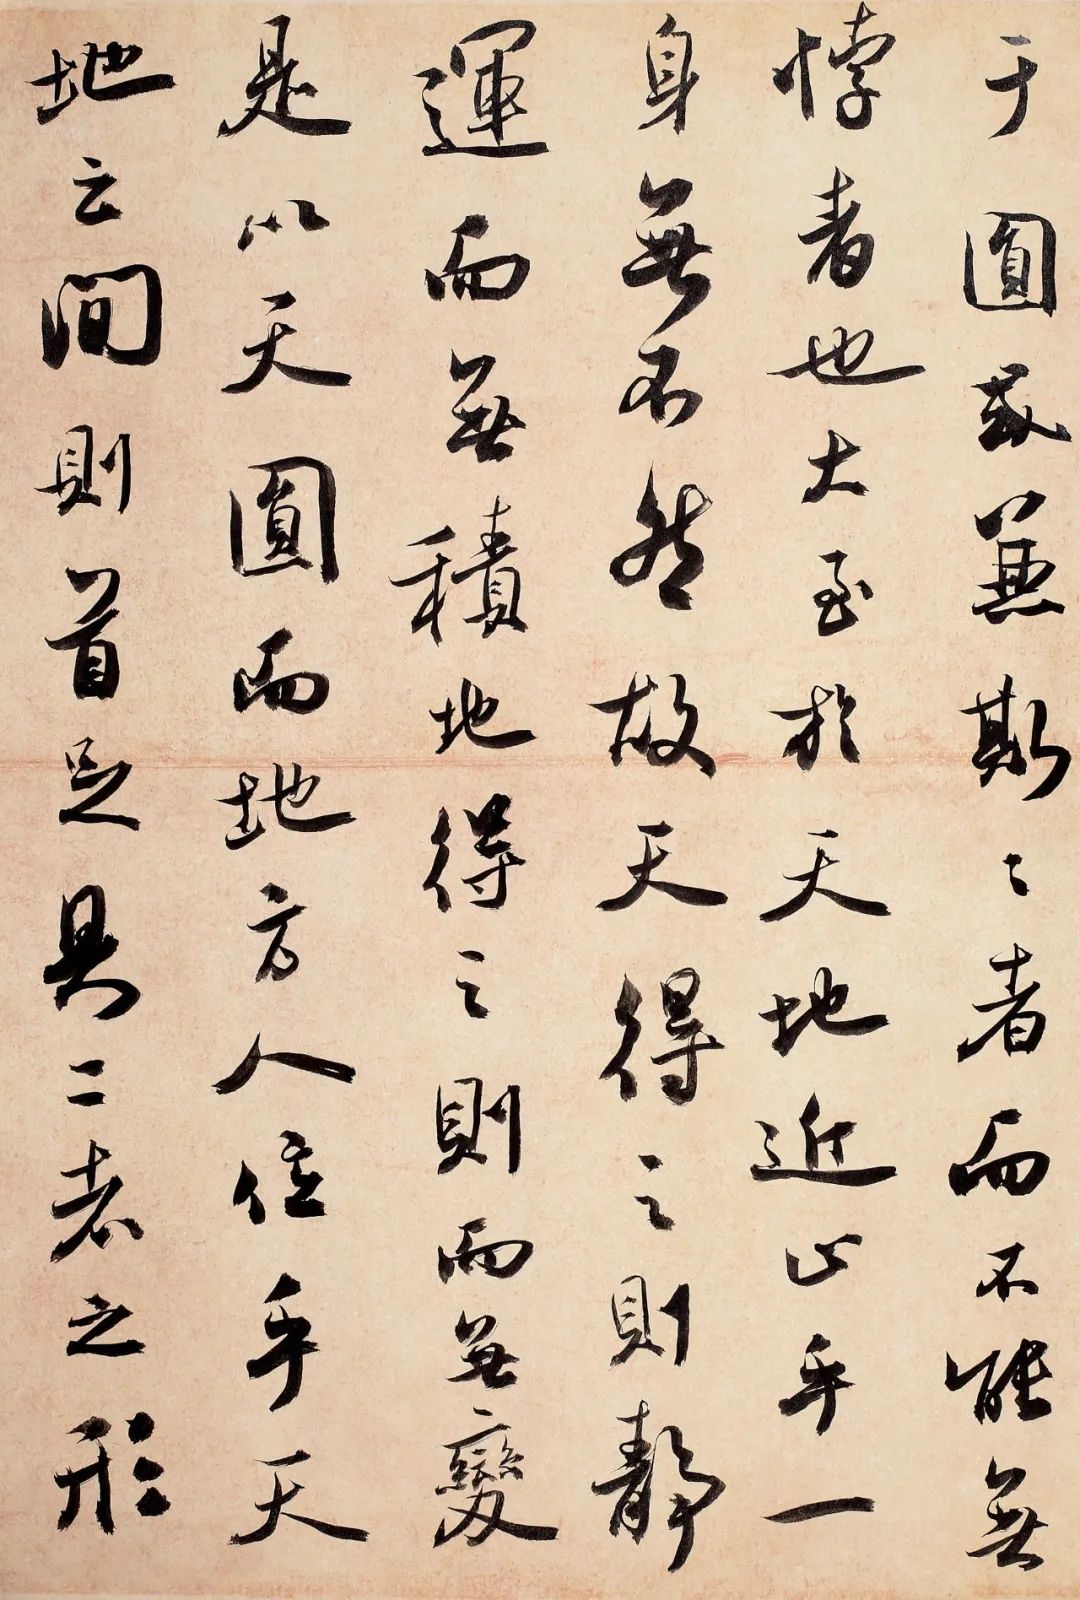 于圓或兼斯二者而不能無
悖者也大至於天地近止乎一
身無不然故天得之則靜
運而無積地得之則而無變
是以天圓而地方人位乎天
地之間則首足具二者之形